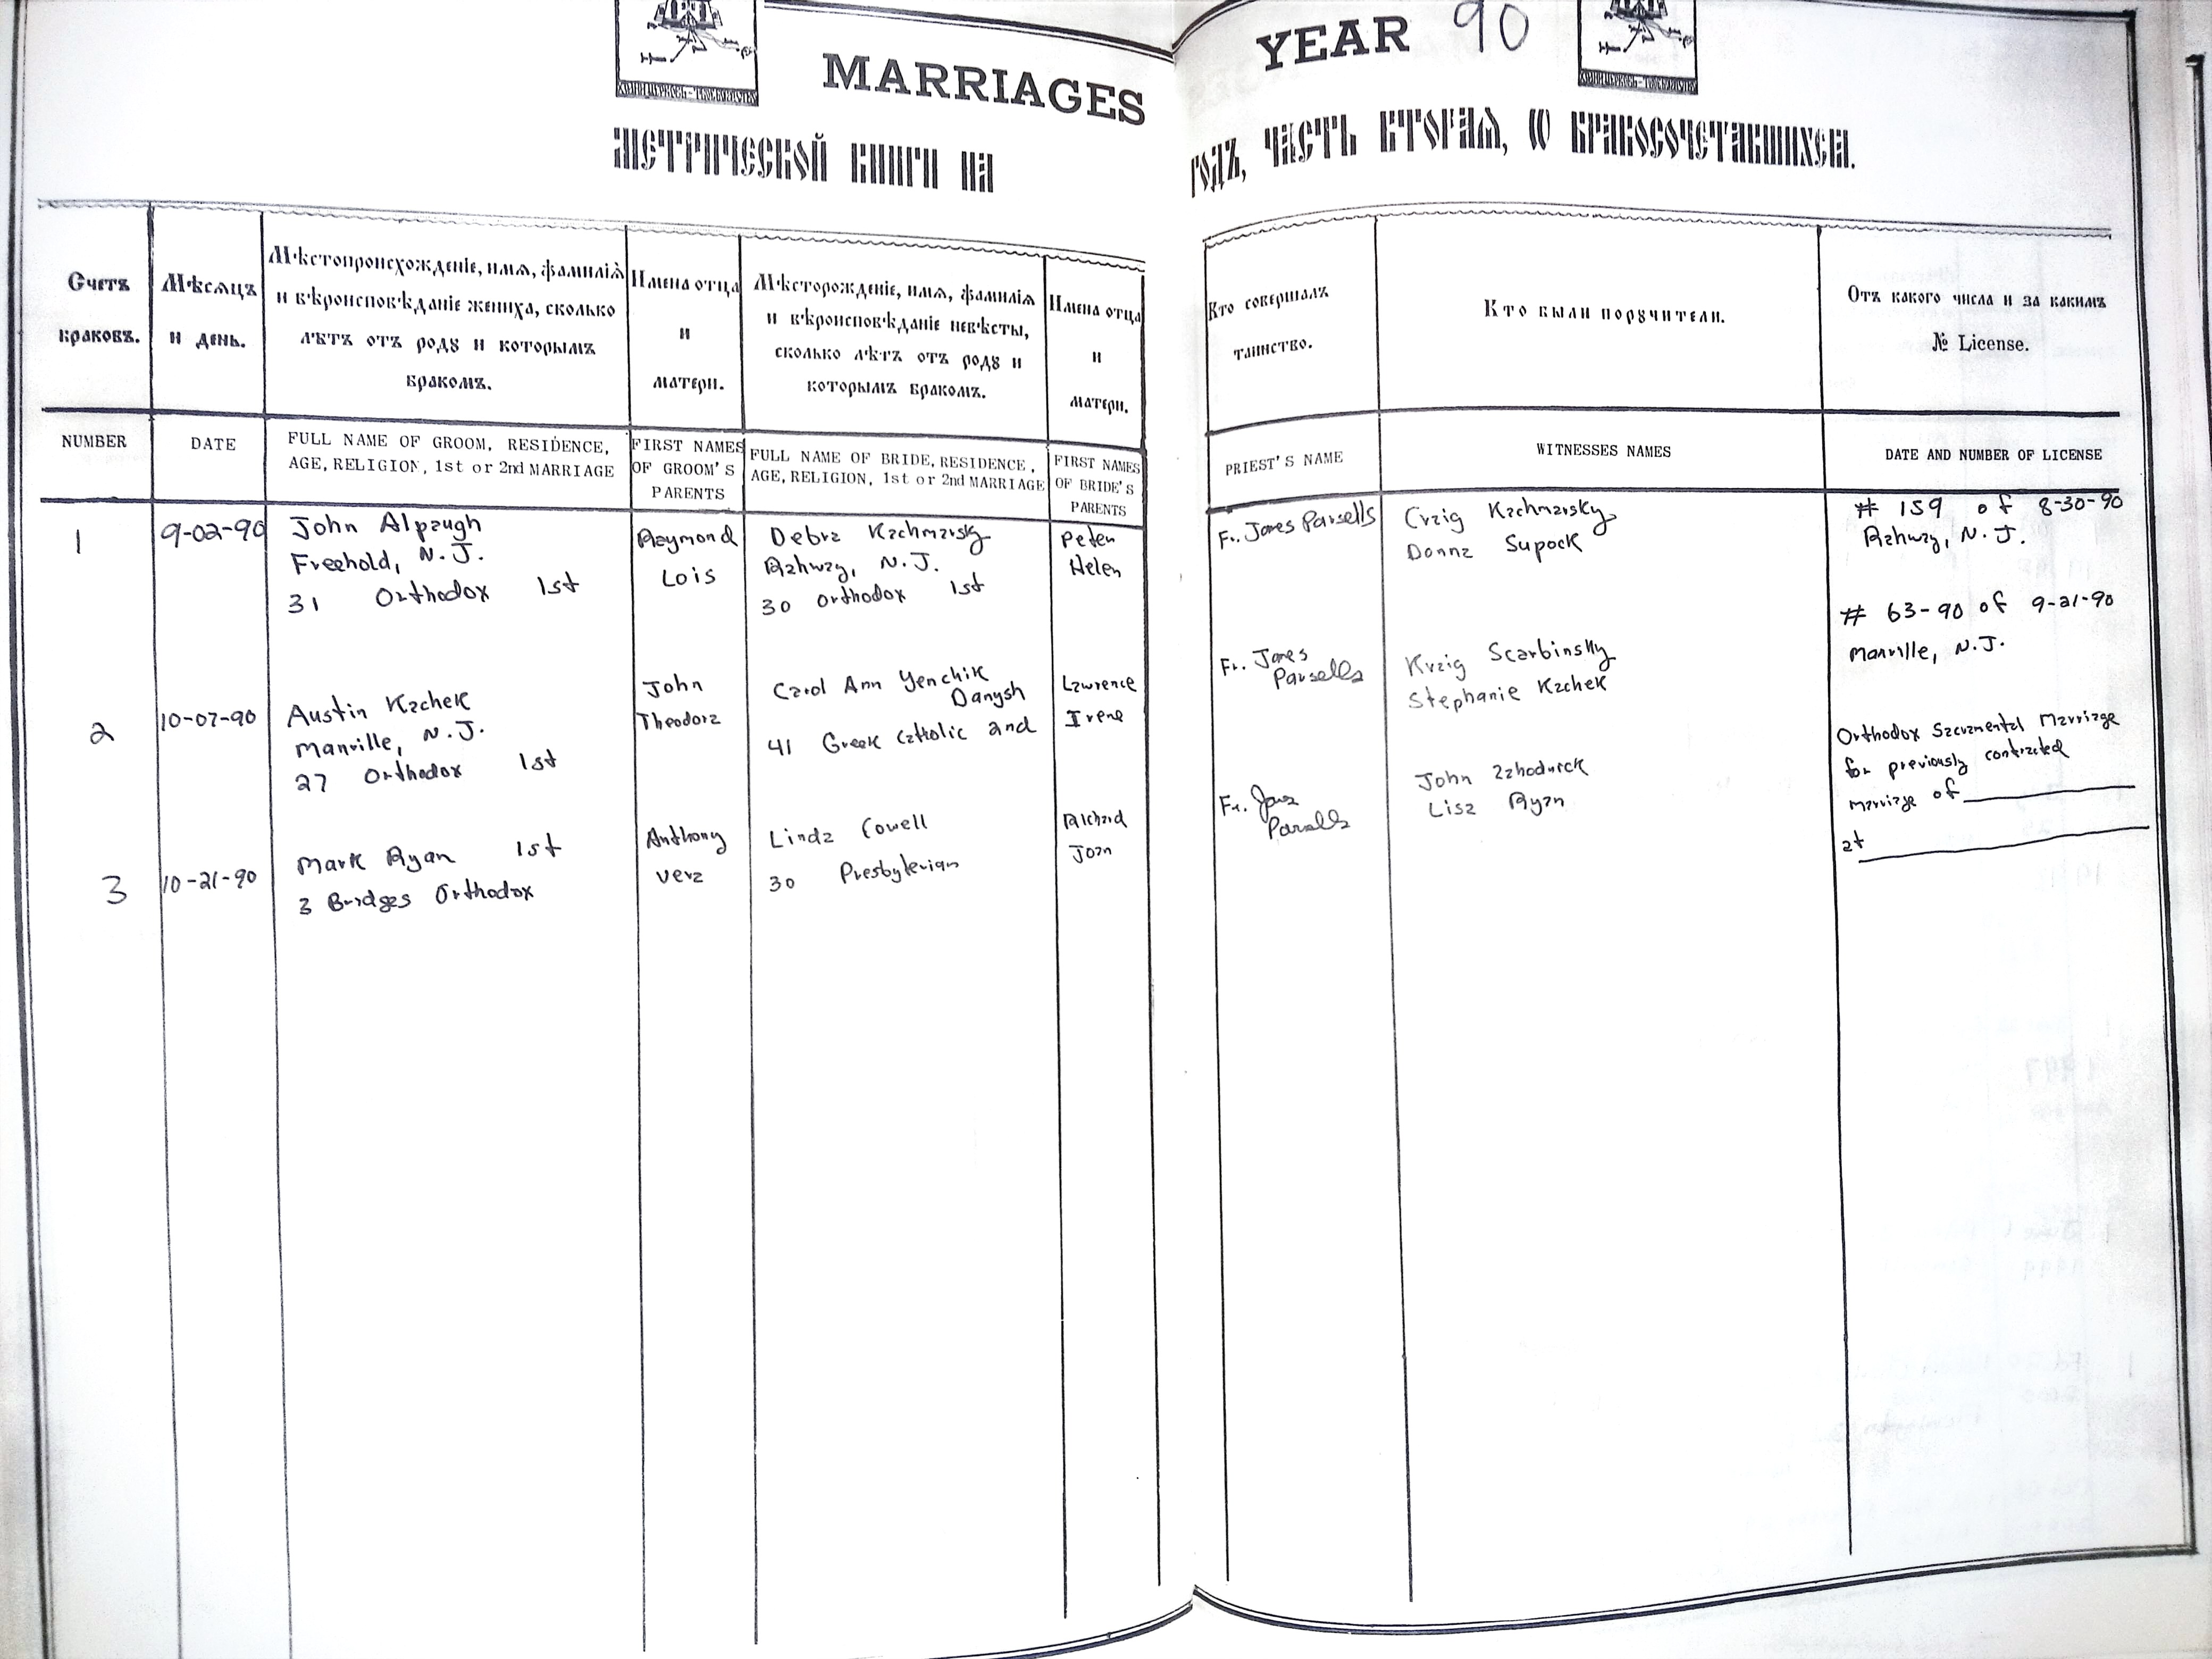 MARRIAGES
YEAR 90
МЕТРИЧЕСКОЙ КНИГИ НА
ГОДЪ, ЧАСТЬ ВТОРАѦ, Ѡ БРАКОСОЧЕТАВШИХСѦ.
Счетъ браковъ.
Мѣсѧцъ и день.
Мѣстопроисхожденіе, имѧ, фамиліѧ
и вѣроисповѣданіе жениха, сколько
лѣтъ отъ родꙋ и которымъ
бракомъ.
Имена отца
и
матери.
Мѣсторожденіе, имѧ, фамиліѧ
и вѣроисповѣданіе невѣсты,
сколько лѣтъ отъ родꙋ и
которымъ бракомъ.
Имена отца
и
матери.
Кто совершалъ
таинство.
Кто были порꙋчители.
Отъ какого числа и за какимъ
№ License.
NUMBER
DATE
FULL NAME OF GROOM, RESIDENCE,
AGE, RELIGION, 1st or 2nd MARRIAGE
FIRST NAMES
OF GROOM'S
PARENTS
FULL NAME OF BRIDE, RESIDENCE,
AGE, RELIGION, 1st or 2nd MARRIAGE
FIRST NAMES
OF BRIDE'S
PARENTS
PRIEST'S NAME
WITNESSES NAMES
DATE AND NUMBER OF LICENSE
1
9-02-90
John Alpaugh
Freehold, N.J.
31 Orthodox 1st
Raymond
Lois
Debra Kachmarsky
Rahway, N.J.
30 Orthodox 1st
Peter
Helen
Fr. James Parsells
Craig Kachmarsky
Donna Supock
# 159 of 8-30-90
Rahway, N.J.
2
10-07-90
Austin Kachek
Manville, N.J.
27 Orthodox 1st
John
Theodora
Carol Ann Yenchik
Danysh
41 Greek Catholic 2nd
Lawrence
Irene
Fr. James
Parsells
Kraig Scarbinsky
Stephanie Kachek
# 63-90 of 9-21-90
Manville, N.J.
3
10-21-90
Mark Ryan 1st
3 Bridges Orthodox
Anthony
Vera
Linda Cowell
30 Presbyterian
Richard
Joan
Fr. James
Parsells
John Zahodnick
Lisa Ryan
Orthodox Sacramental Marriage
for previously contracted
marriage of
at